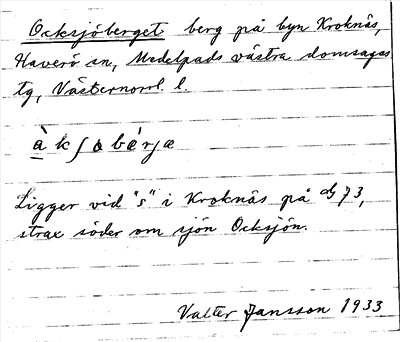 Ocksjöberget berg på byn Kroknäs,
Haverö sn, Medelpads västra domsagas
tg, Västernorrl. l.
àkʃobérjæ
Ligger vid "s" i Kroknäs på 73,
strax söder om sjön Ocksjön.
Valter Jansson 1933